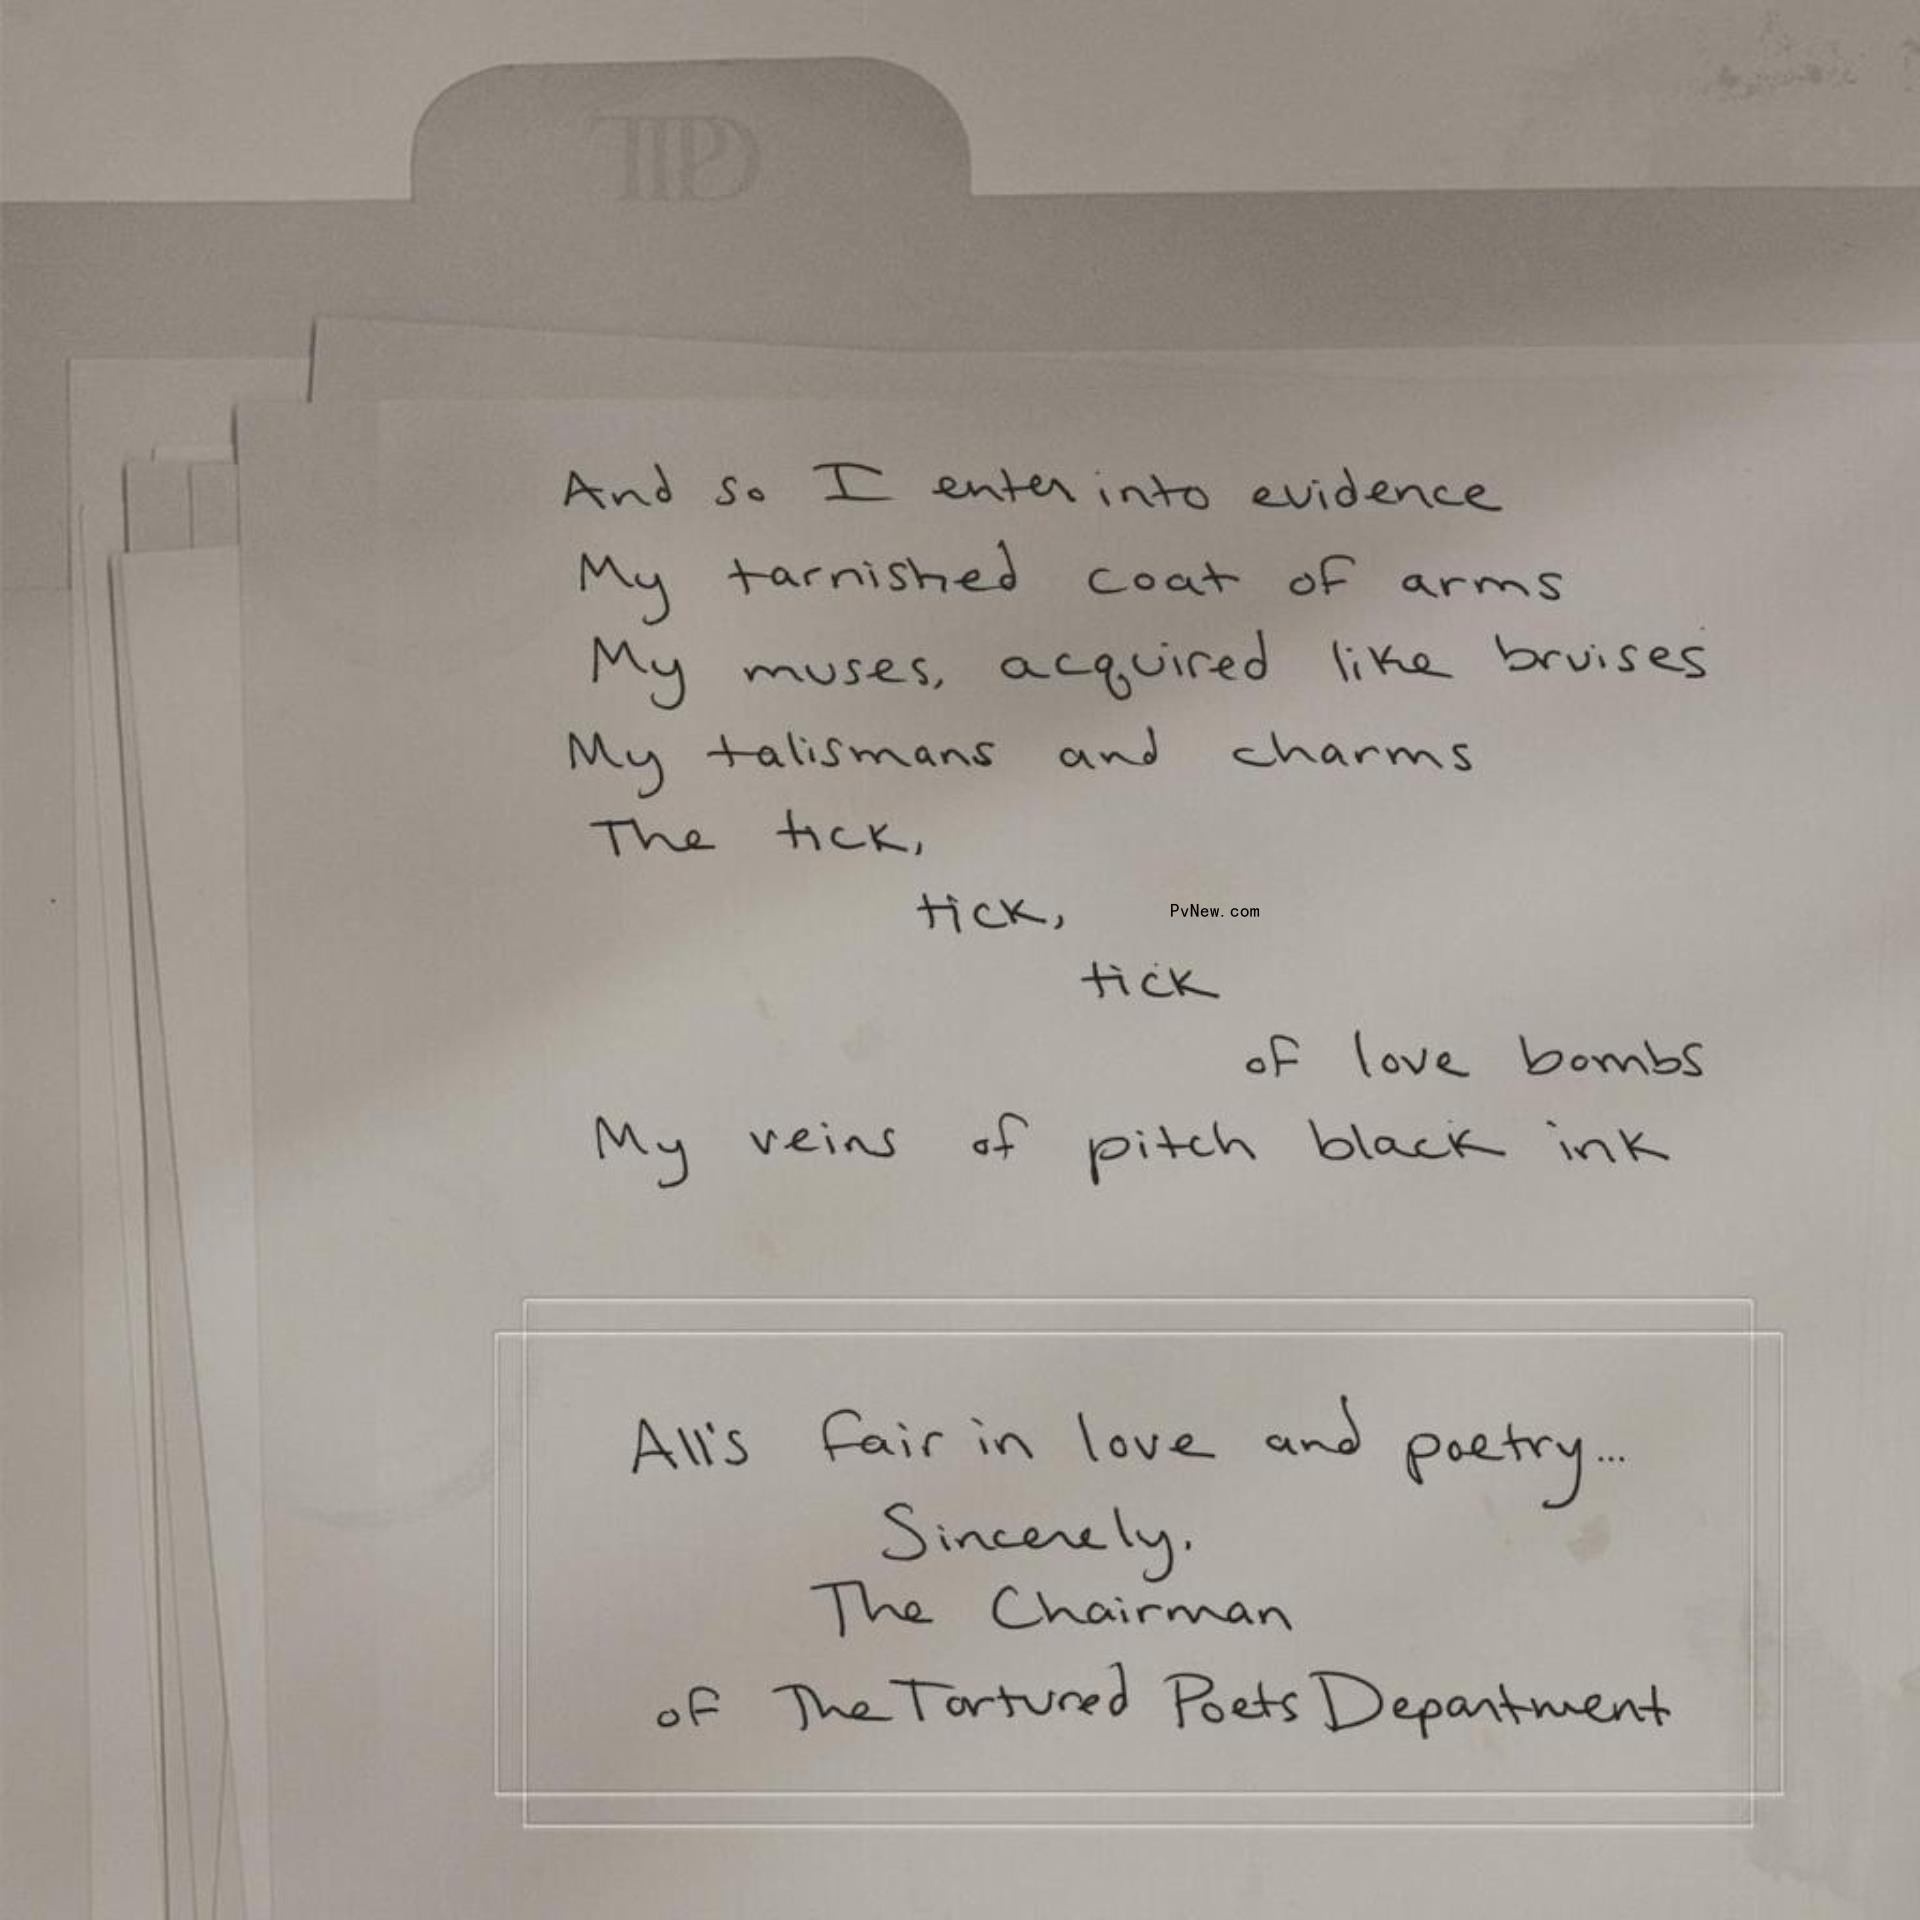 TTPD
And so I enter into evidence
My tarnished coat of arms
My muses, acquired like bruises
My talismans and charms
The tick,
tick,
PvNew.com
tick
of love bombs
My veins of pitch black ink
All's fair in love and poetry...
Sincerely,
The Chairman
of The Tortured Poets Department